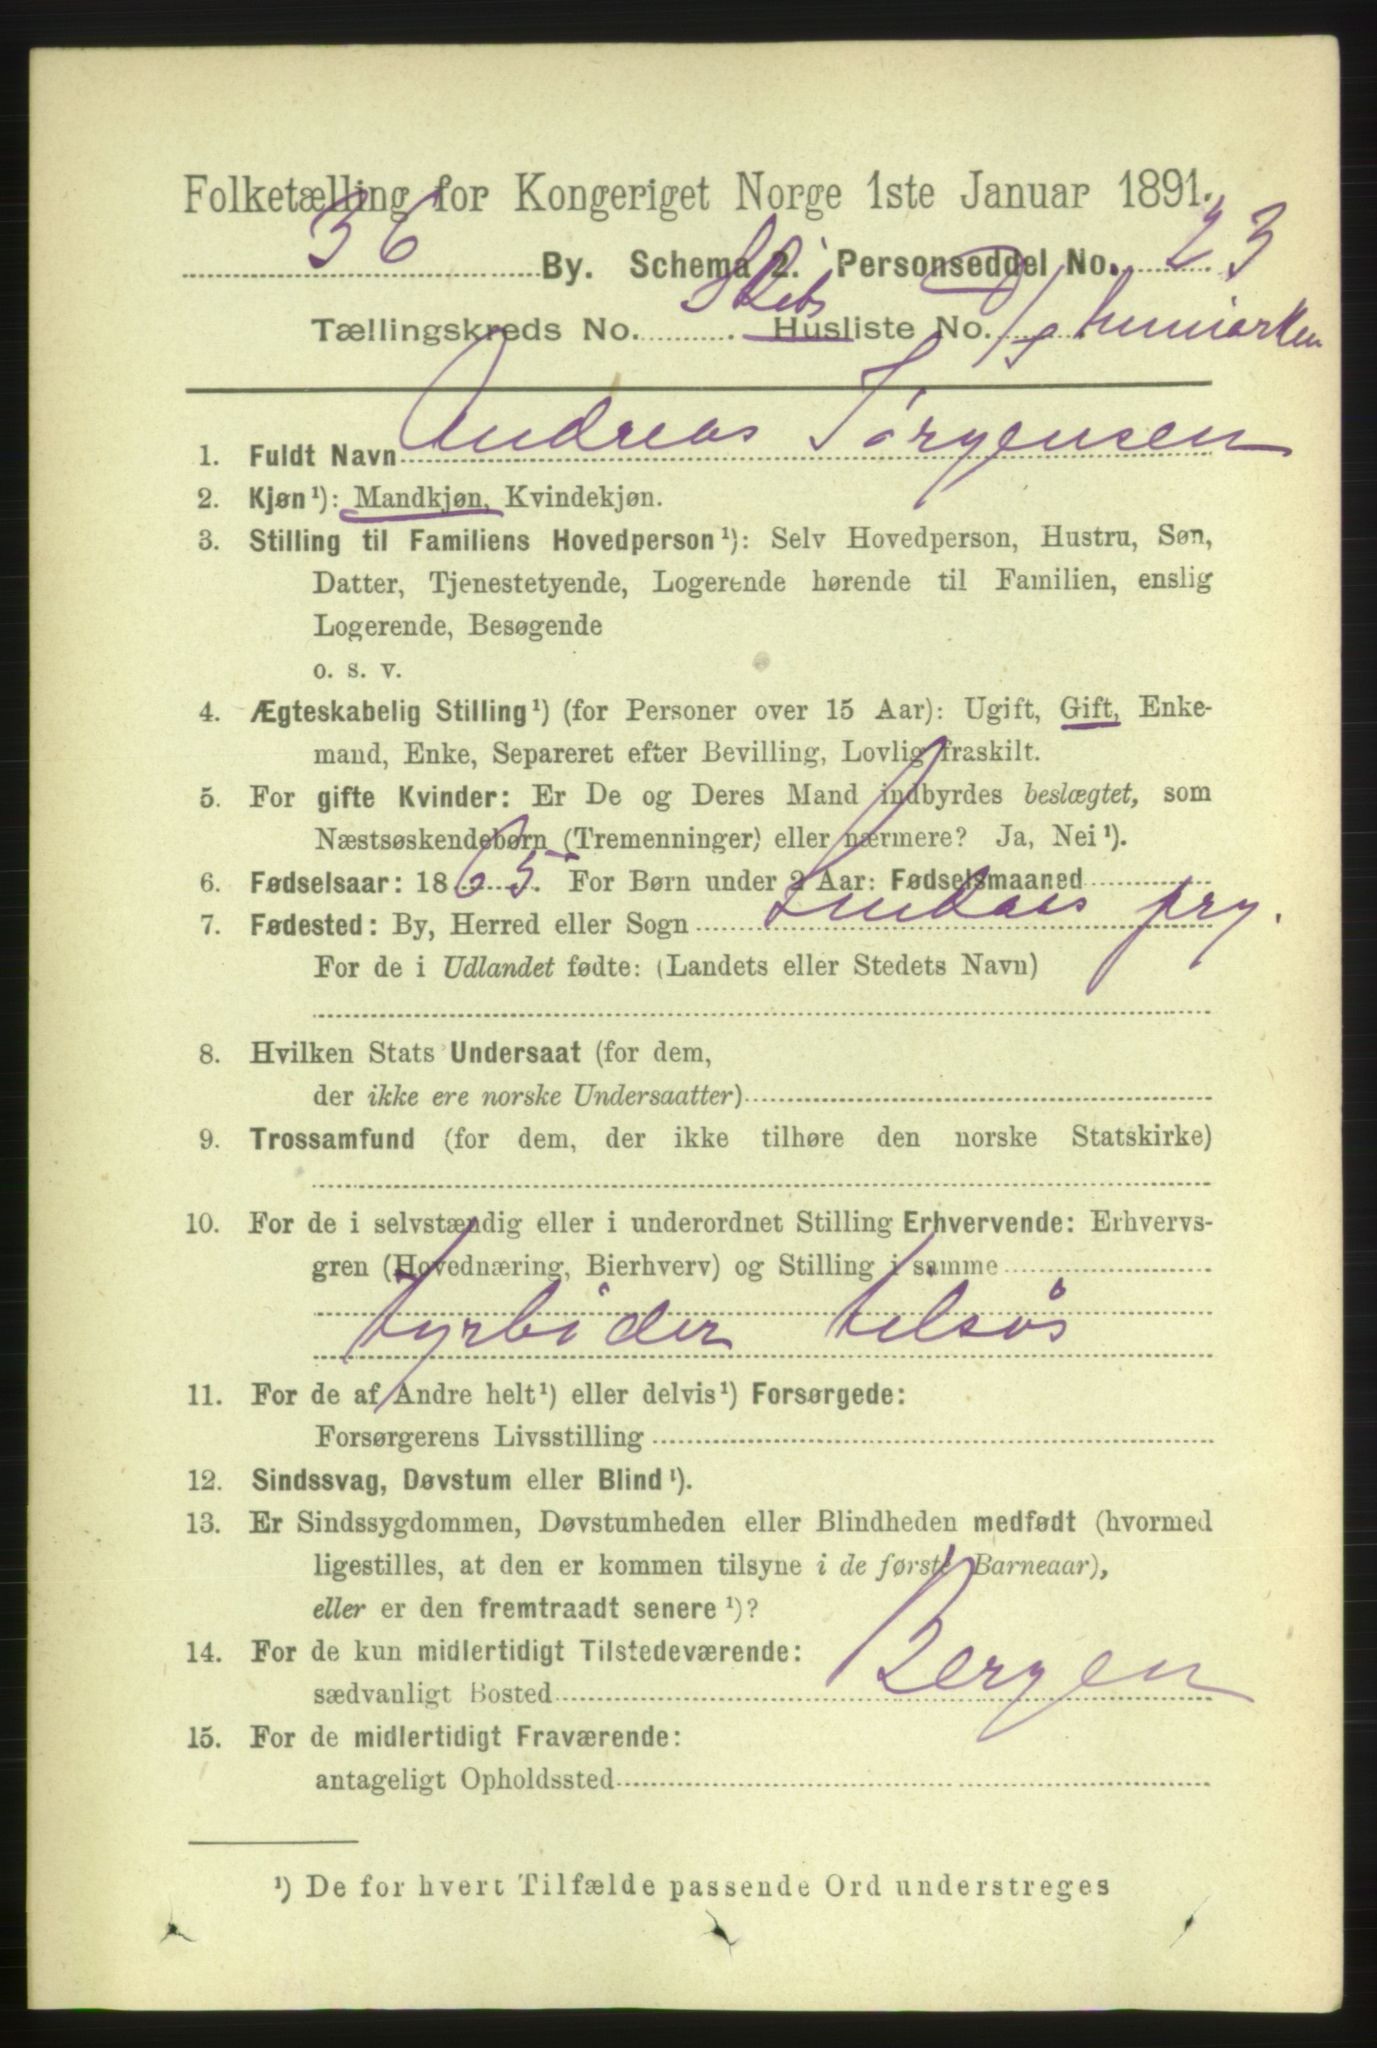 Folketælling for Kongeriget Norge 1ste Januar 1891.
36 By. Schema 2. Personseddel No. 23
Tællingskreds No. Husliste No.
1. Fuldt Navn Andreas Jörgensen
2. Kjøn ¹): Mandkjøn, Kvindekjøn.
3. Stilling til Familiens Hovedperson ¹): Selv Hovedperson, Hustru, Søn,
Datter, Tjenestetyende, Logerende hørende til Familien, enslig
Logerende, Besøgende
o. s. v.
4. Ægteskabelig Stilling ¹) (for Personer over 15 Aar): Ugift, Gift, Enke-
mand, Enke, Separeret efter Bevilling, Lovlig fraskilt.
5. For gifte Kvinder: Er De og Deres Mand indbyrdes beslægtet, som
Næstsøskendebørn (Tremenninger) eller nærmere? Ja, Nei ¹).
6. Fødselsaar: 1865 For Børn under 2 Aar: Fødselsmaaned
7. Fødested: By, Herred eller Sogn Lindaas prg.
For de i Udlandet fødte: (Landets eller Stedets Navn)
8. Hvilken Stats Undersaat (for dem,
der ikke ere norske Undersaatter)
9. Trossamfund (for dem, der ikke tilhøre den norske Statskirke)
10. For de i selvstændig eller i underordnet Stilling Erhvervende: Erhvervs-
gren (Hovednæring, Bierhverv) og Stilling i samme
fyrböder tilsös
11. For de af Andre helt ¹) eller delvis ¹) Forsørgede:
Forsørgerens Livsstilling
12. Sindssvag, Døvstum eller Blind ¹).
13. Er Sindssygdommen, Døvstumheden eller Blindheden medfødt (hvormed
ligestilles, at den er kommen tilsyne i de første Barneaar),
eller er den fremtraadt senere ¹)?
14. For de kun midlertidigt Tilstedeværende:
sædvanligt Bosted Bergen
15. For de midlertidigt Fraværende:
antageligt Opholdssted
¹) De for hvert Tilfælde passende Ord understreges